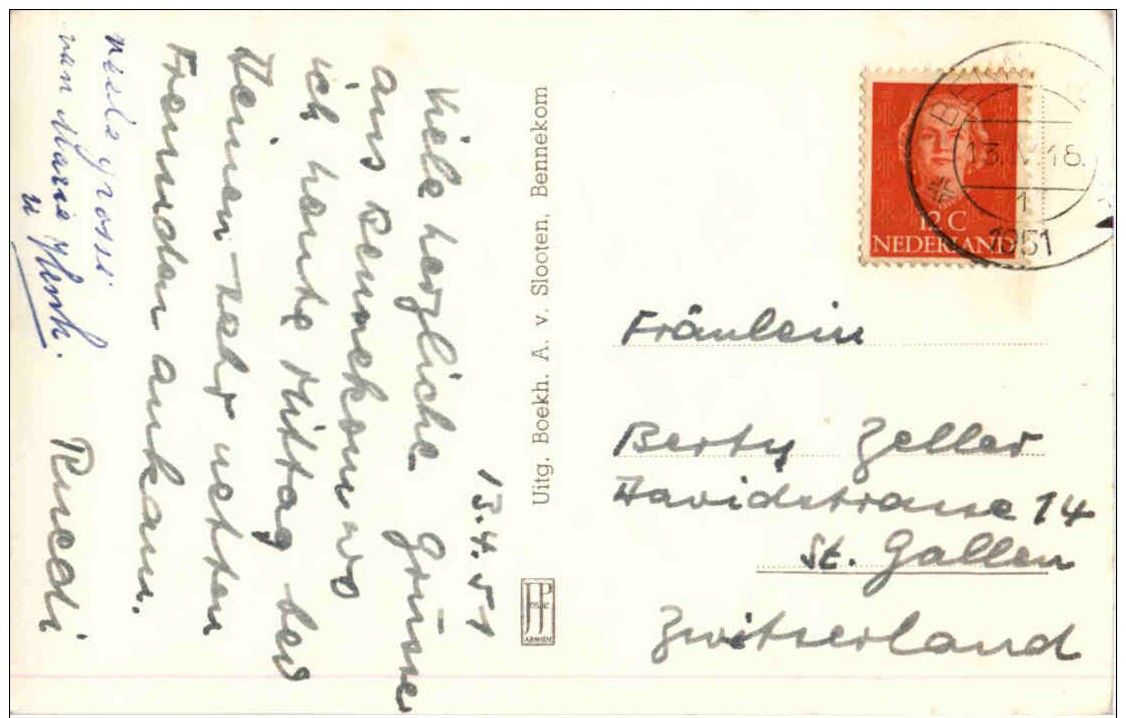 13.4.51
Viele herzliche Grüsse
aus Bennekom wo
ich heute Mittag bei
Deinen sehr netten
Freunden ankam.
Ruedi
viele grosse
van Marie
u Henk.
Uitg. Boekh. A. v. Slooten, Bennekom
JP
ARNHEM
12 C
NEDERLAND
13.IV.16.
1951
Fräulein
Berty Zeller
Davidstrasse 14
St. Gallen
Zwitserland